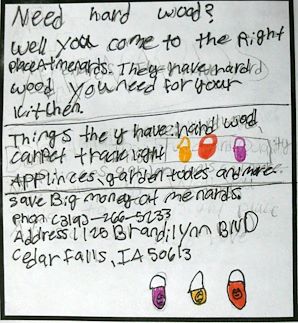 Need hard wood?
Well you come to the Right
place At menards. They have hard
wood you need for your
kitchen.
Things they have hard wood
carpet track light
Applinces, garden tooles and more.
save Big money at menards.
phon (319)-266-5233
Address 1125 Brandilynn BlVD
Cedar falls, IA 50613